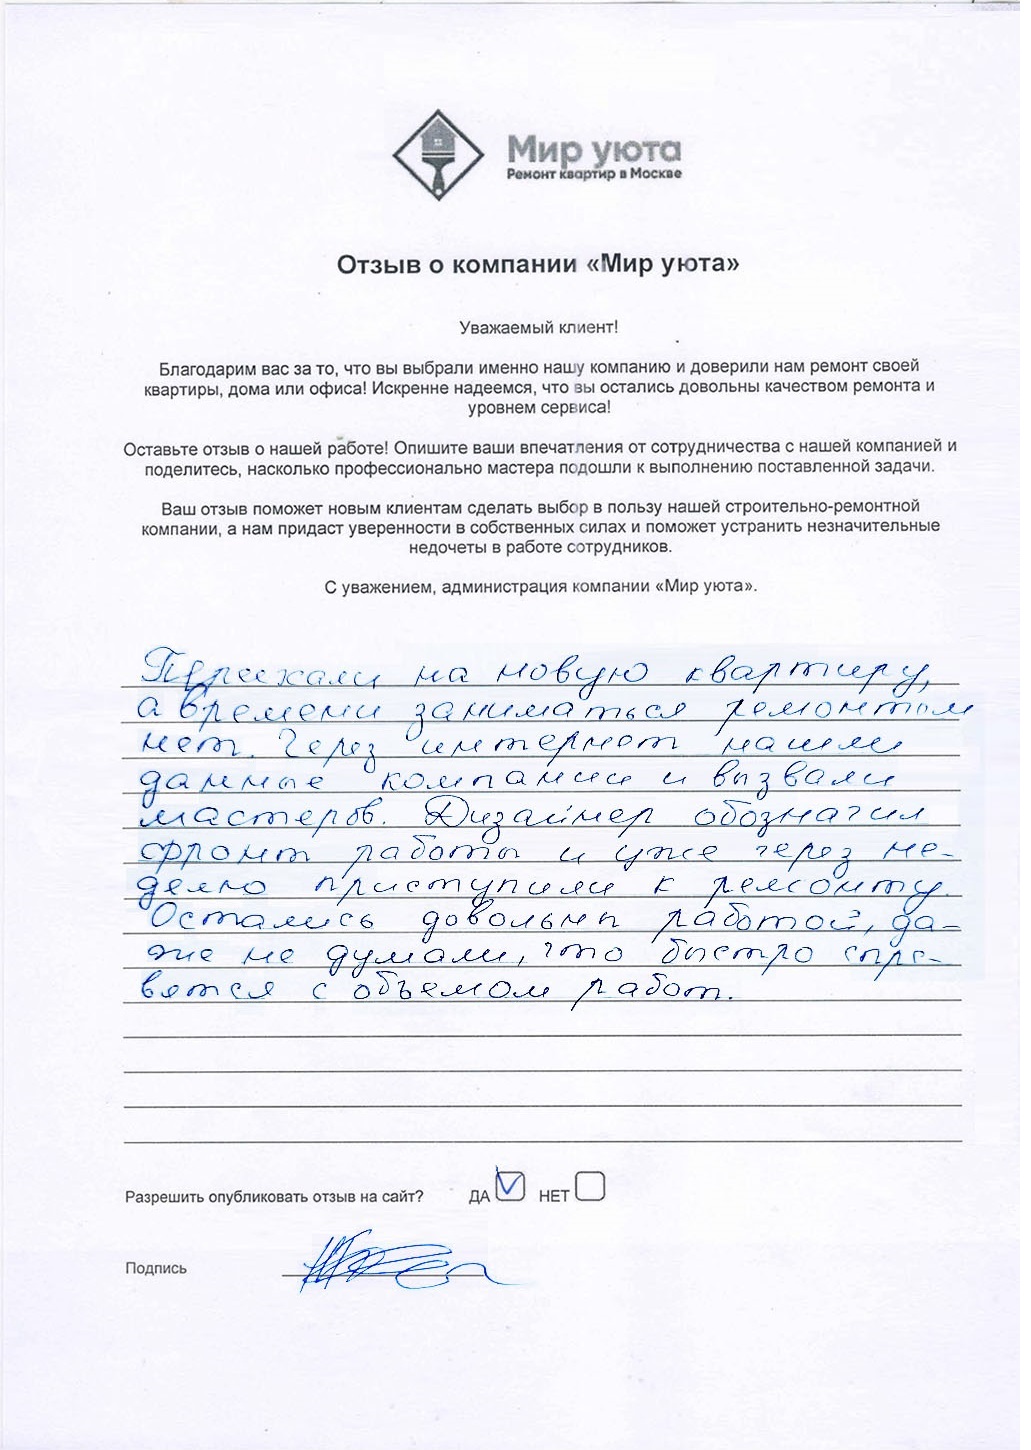 Мир уюта
Ремонт квартир в Москве
Отзыв о компании «Мир уюта»
Уважаемый клиент!
Благодарим вас за то, что вы выбрали именно нашу компанию и доверили нам ремонт своей
квартиры, дома или офиса! Искренне надеемся, что вы остались довольны качеством ремонта и
уровнем сервиса!
Оставьте отзыв о нашей работе! Опишите ваши впечатления от сотрудничества с нашей компанией и
поделитесь, насколько профессионально мастера подошли к выполнению поставленной задачи.
Ваш отзыв поможет новым клиентам сделать выбор в пользу нашей строительно-ремонтной
компании, а нам придаст уверенности в собственных силах и поможет устранить незначительные
недочеты в работе сотрудников.
С уважением, администрация компании «Мир уюта».
Переехали на новую квартиру,
а времени заниматься ремонтом
нет. Через интернет нашли
данные компании и вызвали
мастеров. Дизайнер обозначил
фронт работы и уже через не-
делю приступили к ремонту.
Остались довольны работой, да-
же не думали, что быстро спра-
вятся с объемом работ.
Разрешить опубликовать отзыв на сайт? ДА НЕТ
Подпись